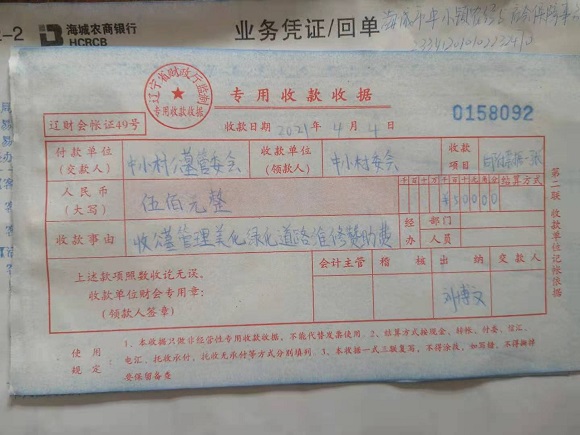 海城农商银行
HCRCB
业务凭证/回单
辽宁省财政厅监制
专用收款收据
专用收款收据
0158092
辽财会帐证49号
收款日期 2021年 4月 4日
付款单位
(交款人)
中小村公墓管委会
收款单位
(领款人)
中小村委会
收款
项目
人民币
(大写)
伍佰元整
千百十万千百十元角分
¥50000
结算方式
收款事由
收公墓管理美化绿化道路维修赞助费
经办
部门
人员
上述款项照数收讫无误。
收款单位财会专用章:
(领款人签章)
会计主管
稽核
出纳
交款人
刘博文
第二联 收款单位记帐依据
使用规定
1、本收据只做非经营性专用收款收据,不能代替发票使用。2、结算方式按现金、转帐、付委、信汇、
电汇、托收承付、托收无承付等方式分别填列。3、本收据一式三联复写,不得涂改,如写错,不得撕掉
要保留备查